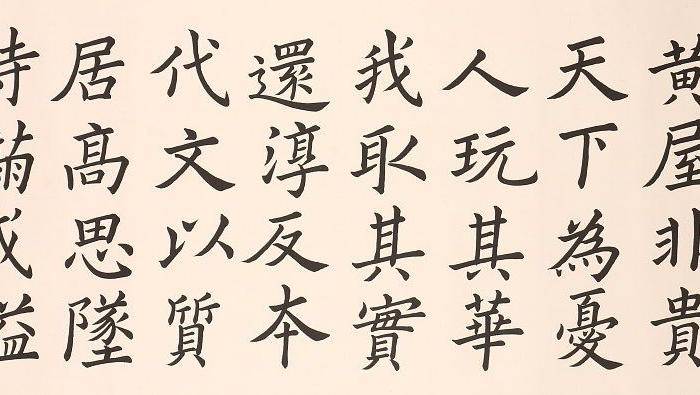 黄屋非貴
天下為憂
人玩其華
我取其實
還淳反本
代文以質
居髙思墜